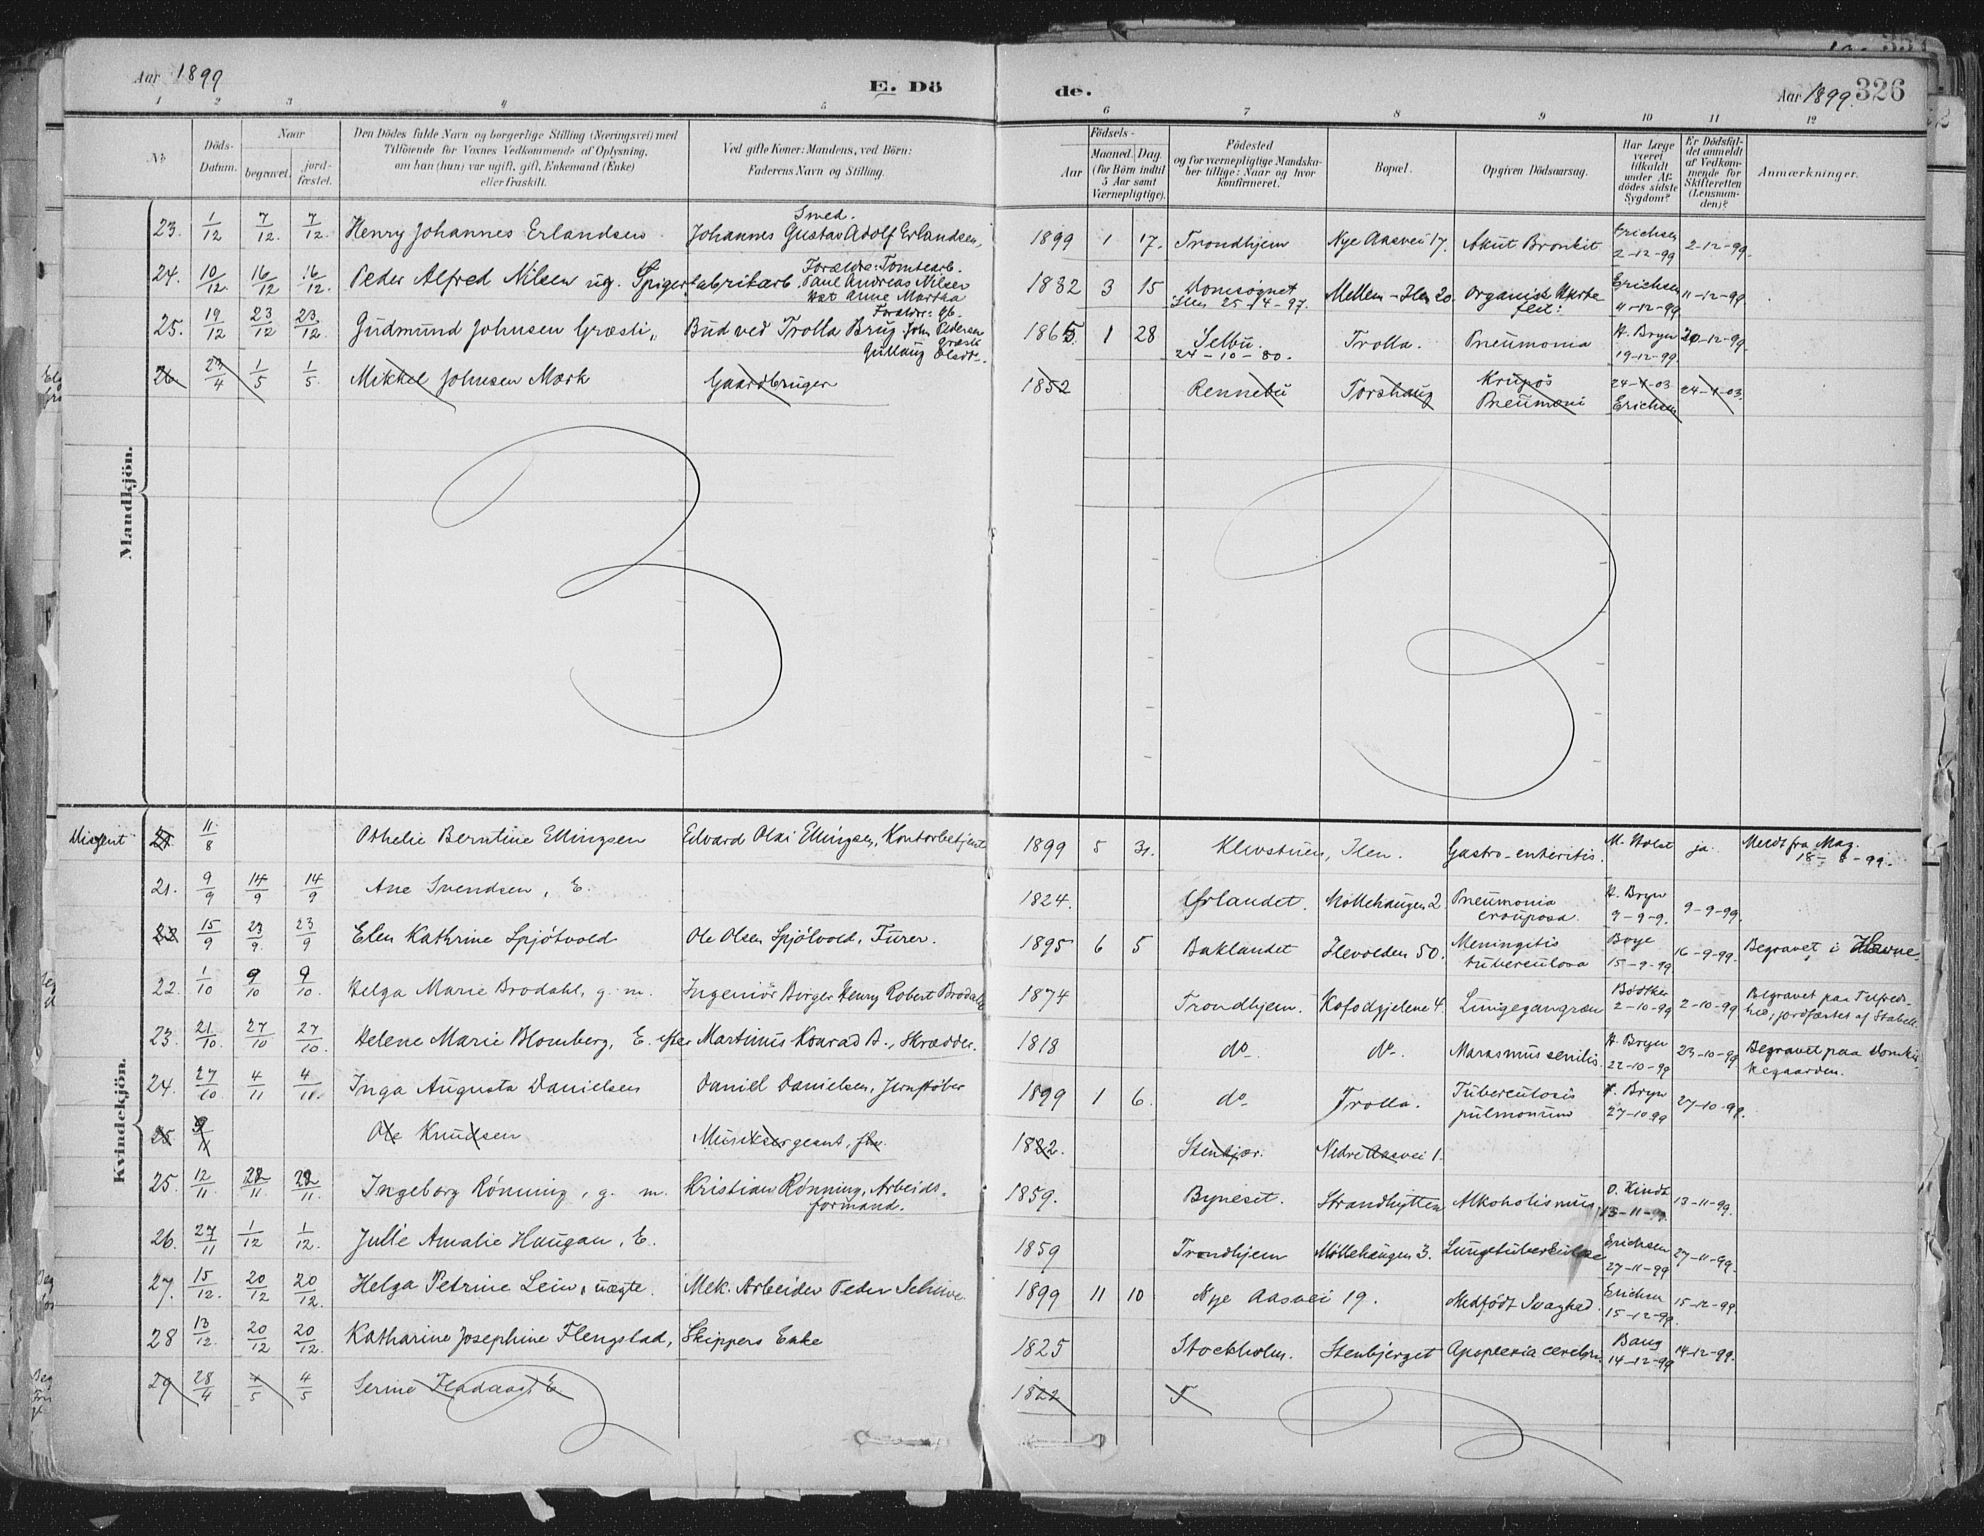 Aar 1899
E. Dö
de.
Aar 1899. 326
1 2 3 4 5 6 7 8 9 10 11 12
No
Döds-Datum.
Naar
begravet.
jord-fæstet.
Den Dödes fulde Navn og borgerlige Stilling (Næringsvei) med
Tilföiende for Voxnes Vedkommende af Oplysning,
om han (hun) var ugift, gift, Enkemand (Enke)
eller fraskilt.
Ved gifte Koner: Mandens, ved Börn:
Faderens Navn og Stilling.
Födsels-
Aar
Maaned. Dag.
(for Börn indtil
5 Aar samt
Værnepligtige).
Födested
og for værnepligtige Mandska-
ber tillige: Naar og hvor
konfirmeret.
Bopæl.
Opgiven Dödsaarsag.
Har Læge
været
tilkaldt
under Af-
dödes sidste
Sygdom?
Er Dödsfal-
det anmeldt
af Vedkom-
mende for
Skifteretten
(Lensman-
den)?
Anmærkninger.
Mandkjön.
23. 1/12 7/12. 7/12. Henry Johannes Erlandsen Smed. Johannes Gustav Adolf Erlandsen, 1899 1 17. Trondhjem Nye Aasvei 17. Akut Bronkit Erichsen 2-12-99 2-12-99.
24. 10/12. 16/12 16/12. Peder Alfred Nilsen ug. Spigerfabrikarb. Forældre: Tomtearb. Paul Andreas Nilsen Anne Martha 1882 3 15 Domsognet Ilen 25-4-97. Mellem-Ilen 20. Organisk Hjerte feil. Erichsen 11-12-99 11-12-99.
25. 19/12 23/12 23/12 Gudmund Johnsen Græsli, Bud ved Trolla Brug Forældre: John Pedersen Græsli Gullaug Olsdt. 1865 1 28 Selbu. 24-10-80. Trolla. Pneumonia H. Bryn 19-12-99. 20-12-99.
26 23/4 1/5 1/5. Mikkel Johnsen Mærk Gaardbruger 1852 Rennebu Torshaug Krupøs Pneumoni 24-4-03 Erichsen 24-4-03.
Kvindekjön.
21 11/8 Othelie Berntine Ellingsen Edvard Olai Ellingsen, Kontorbetjent 1899 5 31. Klevstuen, Ilen. Gastro-enteritis. M. Holst ja. Meldt fra Mag. 18-8-99.
21. 9/9 14/9 14/9 Ane Svendsen, E. 1824. Ørlandet. Möllehaugen 2. Pneumonia crouposa. H. Bryn 9-9-9. 9-9-99.
22 15/9 23/9. 23/9 Elen Kathrine Spjötvold Ole Olsen Spjötvold, Furer. 1895 6 5 Baklandet Ilevolden 50. Meningitis tuberculosa Boye 15-9-99 16-9-99. Begravet i
22. 1/10 9/10 9/10. Helga Marie Brodahl, g. m. Ingeniör Birger Henry Robert Brodahl 1874 Trondhjem. Kofodgjelene 4. Lungegangræn Bödtker 2-10-99 2-10-99 Begravet paa Tilfreds- hed, jordfæstet af Stabell.
23. 21/10. 27/10 27/10. Helene Marie Blomberg, E. efter Martinus Konrad B., Skrædder. 1818 do. do. Marasmus senilis. H. Bryn 22-10-99 23-10-99 Begravet paa Domkir- kegaarden.
24. 27/10 4/11 4/11. Inga Augusta Danielsen Daniel Danielsen, Jernstöber 1899 1 6. do Trolla. Tuberculosis pulmonum H. Bryn 27-10-99 27-10-99.
25 9/11 Ole Knudsen Musiksergeant, 1822. Stenkjær. Nedre Aasvei 1.
25. 12/11. 22/11. 22/11. Ingeborg Rönning, g. m. Kristian Rönning, Arbeids- formand. 1859. Byneset. Strandhytten Alkoholismus O. Kindt 13-11-99. 13-11-99.
26. 27/11 1/12 1/12. Julie Amalie Haugan, E. 1859 Trondhjem Möllehaugen 3. Lungetuberkulose Erichsen 27-11-99 27-11-99.
27. 15/12. 20/12 20/12. Helga Petrine Lein, uægte. Mek. Arbeider Peder 1899 11 10 Nye Aasvei 19. Medfödt Svaghed. Erichsen 15-12-99. 15-12-99.
28 13/12 20/12 20/12. Katharine Josephine Flengstad, Skippers Enke 1825 Stockholm. Stenbjerget Apoplexia cerebri Bang 14-12-99 14-12-99.
29 28/4 4/5 4/5 Serine E 1822 T